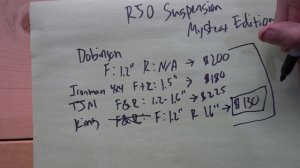 R50 Suspension
Mystery Edition
Dobinson
F: 1.2" R: N/A → $200
Ironman 4x4 F+R: 1.5" → $180
TJM F&R: 1.2-1.6" → $225
King F&R: F: 1.2" R 1.6" → $130